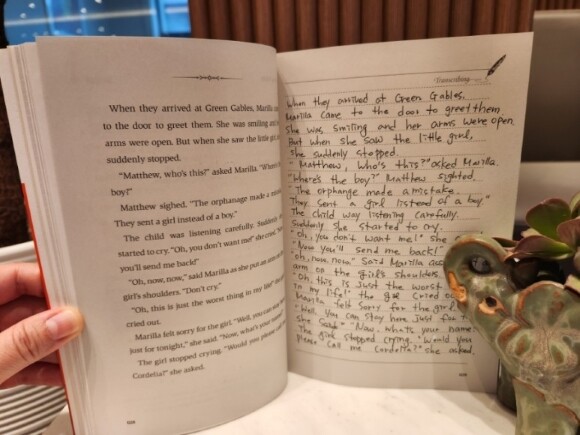 When they arrived at Green Gables, Marilla
to the door to greet them. She was smiling and
arms were open. But when she saw the little
suddenly stopped.
"Matthew, who's this?" asked Marilla. "Where's
boy?"
Matthew sighed. "The orphanage made a
They sent a girl instead of a boy."
The child was listening carefully. Suddenly
started to cry. "Oh, you don't want me!" she
you'll send me back!"
"Oh, now, now," said Marilla as she put an arm
girl's shoulders. "Don't cry."
"Oh, this is just the worst thing in my life!"
cried out.
Marilla felt sorry for the girl. "Well, you can stay
just for tonight," she said. "Now, what's your
The girl stopped crying. "Would you please
Cordelia?" she asked.
108
Transcribing
When they arrived at Green Gables.
Marilla came to the door to greet them.
She was smiling and her arms were open.
But when she saw the little girl,
she suddenly stopped.
"Matthew, who's this?" asked Marilla.
"Where's the boy?" Matthew sighted.
The orphange made a mistake.
They sent a girl listead of a boy."
The child way listening carefully.
Suddenly she started to cry.
"Oh, you don't want me!" she
"Now you'll send me back!"
"oh, now, now" Said Marilla
arm on the girl's shoulders.
"Oh, this is Just the worst
in my life!" the girl cried
Marilla felt sorry for the girl
"Well you can stay here just for
she said. "Now. what's your name
The girl stopped crying. "Would you
please call me Cordelia?" she asked.
109